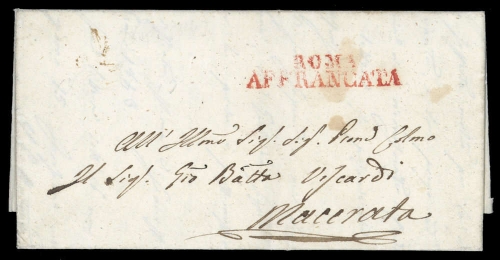 ROMA
AFFRANCATA
All' Illmo Sig. Sig. Pne Colmo
Il Sig. Gio Batta Viscardi
Macerata